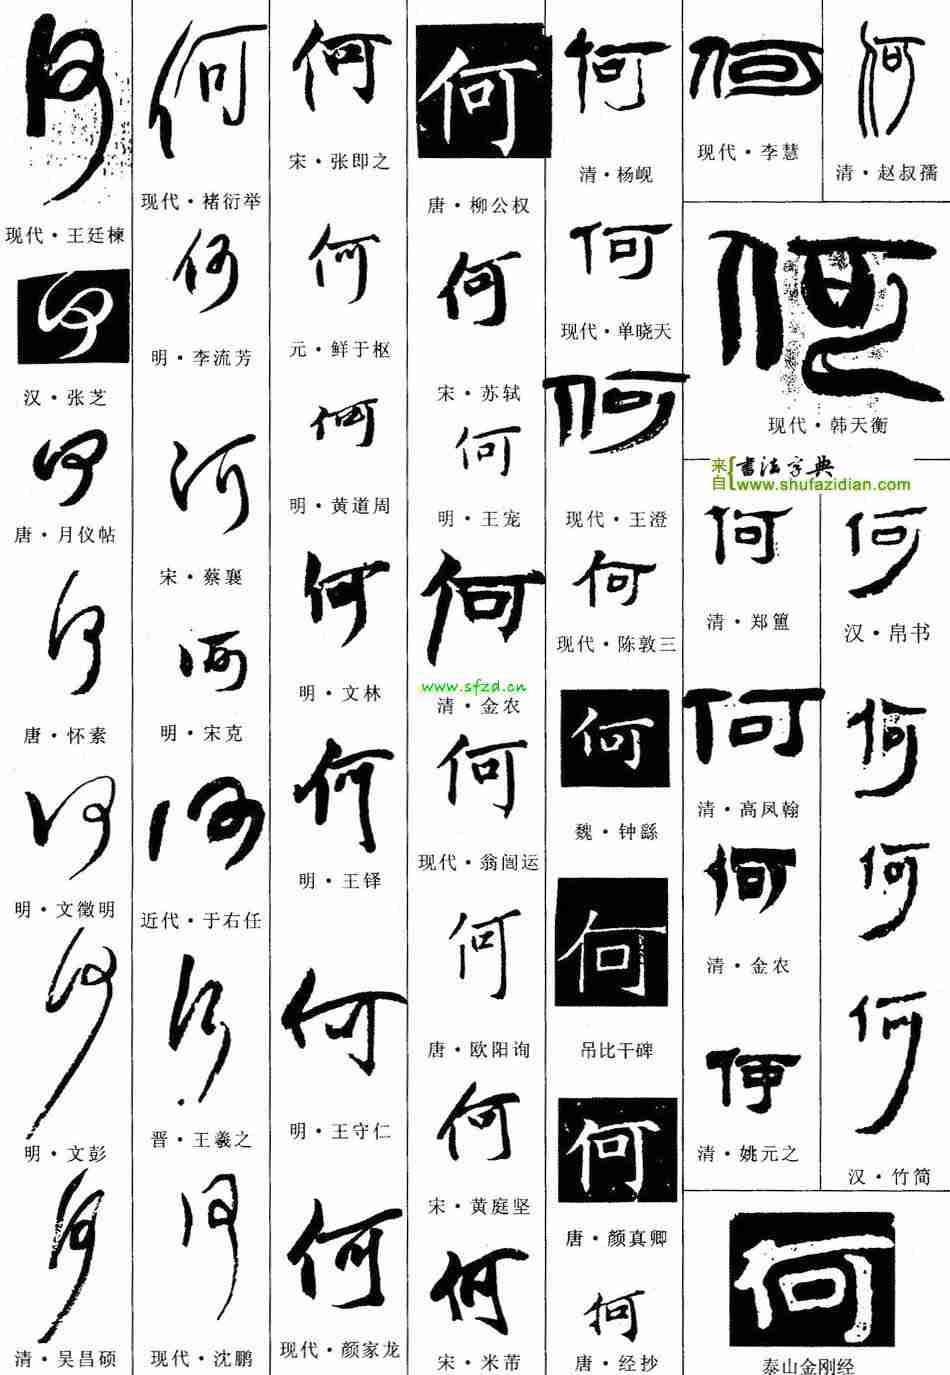 何
现代·王廷楝
何
汉·张芝
何
唐·月仪帖
何
唐·怀素
何
明·文徵明
何
明·文彭
何
清·吴昌硕
何
现代·褚衍举
何
明·李流芳
何
宋·蔡襄
何
明·宋克
何
近代·于右任
何
晋·王羲之
何
现代·沈鹏
何
宋·张即之
何
元·鲜于枢
何
明·黄道周
何
明·文林
何
明·王铎
何
明·王守仁
何
现代·颜家龙
何
唐·柳公权
何
宋·苏轼
何
明·王宠
何
www.sfzd.cn
清·金农
何
现代·翁闿运
何
唐·欧阳询
何
宋·黄庭坚
何
宋·米芾
何
清·杨岘
何
现代·单晓天
何
现代·王澄
何
现代·陈敦三
何
魏·钟繇
何
吊比干碑
何
唐·颜真卿
何
唐·经抄
何
现代·李慧
何
清·赵叔孺
何
现代·韩天衡
来自{書法字典
www.shufazidian.com
何
清·郑簠
何
清·高凤翰
何
清·金农
何
清·姚元之
何
汉·帛书
何
何
何
汉·竹简
何
泰山金刚经